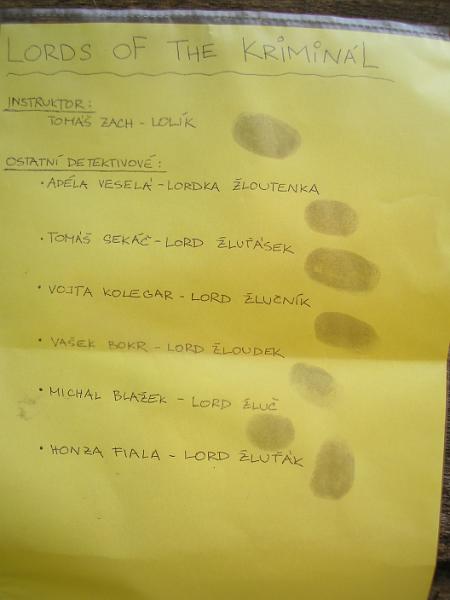 LORDS OF THE KRIMINÁL
INSTRUKTOR:
TOMÁŠ ZACH - LOLÍK
OSTATNÍ DETEKTIVOVÉ:
• ADÉLA VESELÁ - LORDKA ŽLOUTENKA
• TOMÁŠ SEKÁČ - LORD ŽLUŤÁSEK
• VOJTA KOLEGAR - LORD ŽLUČNÍK
• VAŠEK BOKR - LORD ŽLOUDEK
• MICHAL BLAŽEK - LORD ŽLUČ
• HONZA FIALA - LORD ŽLUŤÁK